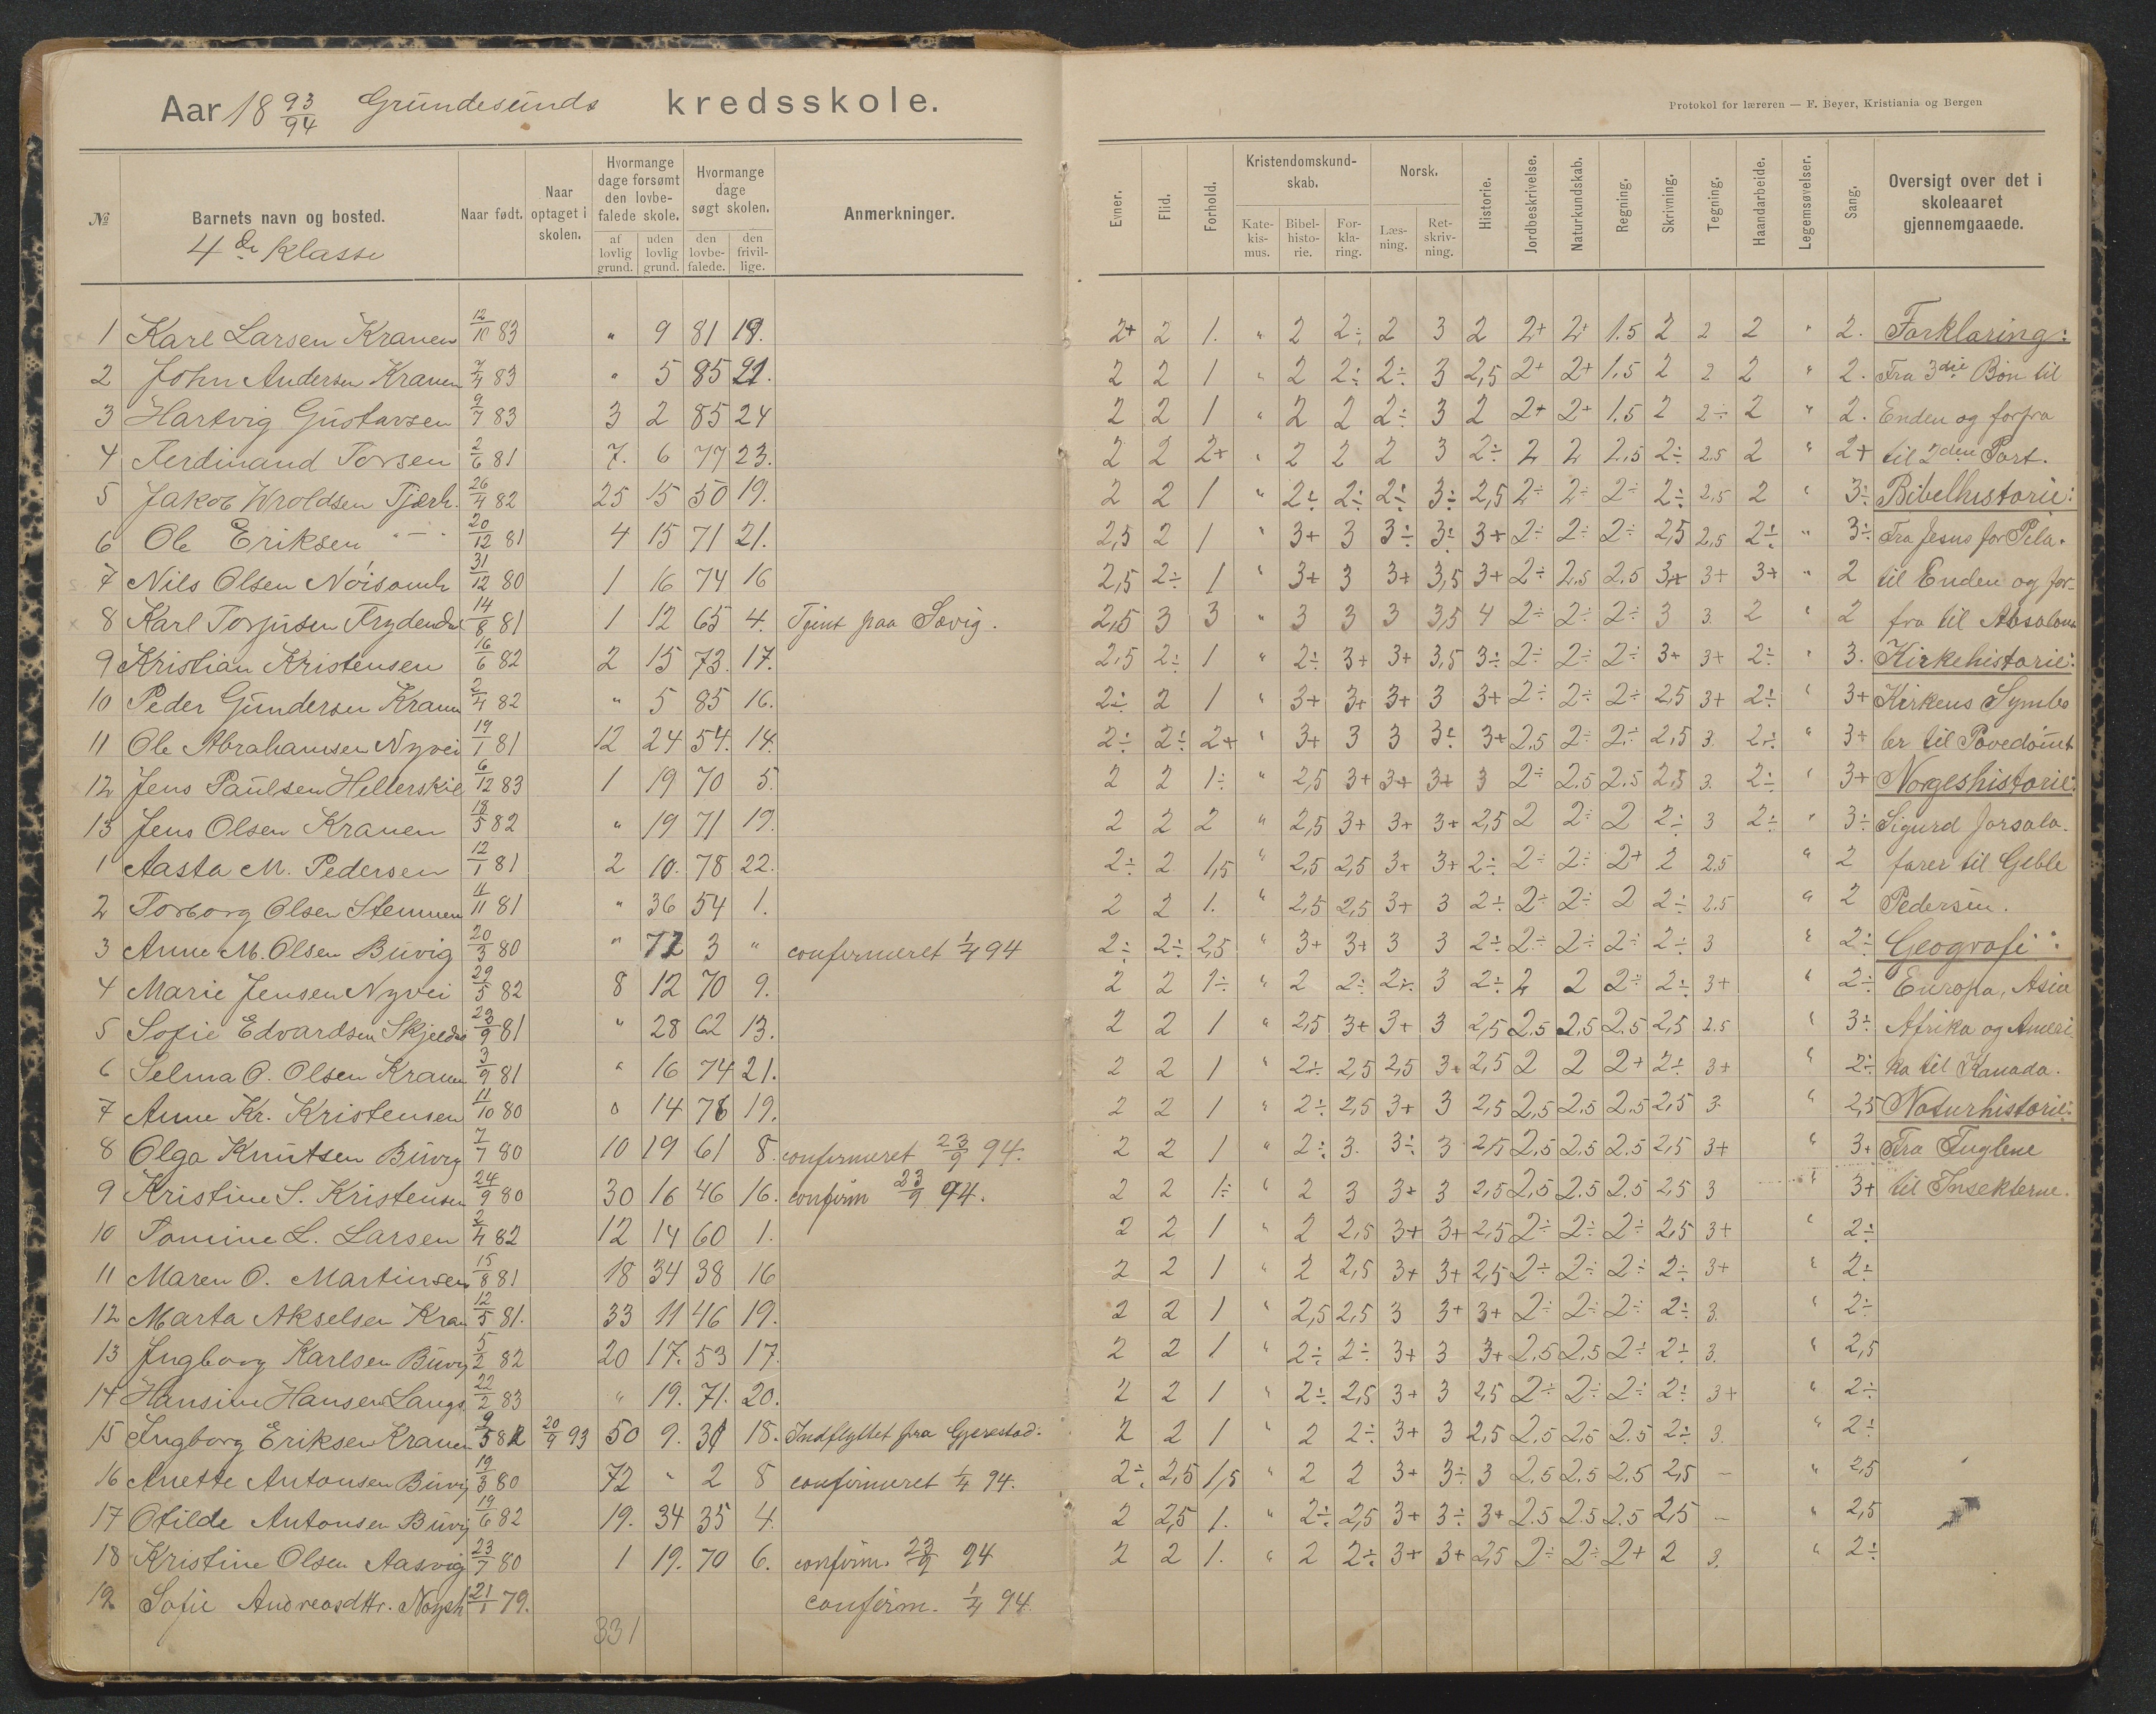 Aar 18 93/94 Grundesunds kredsskole.
Protokol for læreren — F. Beyer, Kristiania og Bergen
№ Barnets navn og bosted. Naar født. Naar optaget i skolen. Hvormange dage forsømt den lovbefalede skole. af lovlig grund. uden lovlig grund. Hvormange dage søgt skolen. den lovbefalede. den frivillige. Anmerkninger.
Evner. Flid. Forhold. Kristendomskundskab. Katekismus. Bibelhistorie. Forklaring. Norsk. Læsning. Retskrivning. Historie. Jordbeskrivelse. Naturkundskab. Regning. Skrivning. Tegning. Haandarbeide. Legemsøvelser. Sang. Oversigt over det i skoleaaret gjennemgaaede.
4de Klasse
1 Karl Larsen Kranen 12/10 83 " 9 81 19. 2+ 2 1. " 2 2÷ 2 3 2 2+ 2+ 1.5 2 2 2 " 2. Forklaring:
2 John Andersen Kranen 7/4 83 " 5 85 21. 2 2 1 " 2 2÷ 2÷ 3 2,5 2+ 2+ 1,5 2 2 2 " 2. Fra 3die Bøn til
3 Hartvig Gustavsen 9/7 83 3 2 85 24 2 2 1 " 2 2 2÷ 3 2 2+ 2+ 1.5 2 2÷ 2 " 2. Enden og forfra
4 Ferdinand Torsen 2/6 81 7. 6 77 23. 2 2 2+ " 2 2 2 3 2÷ 2 2 2,5 2÷ 2.5 2 " 2+ til 2den Part.
5 Jakob Wroldsen Tjærh. 26/4 82 25 15 50 19. 2 2 1 " 2÷ 2÷ 2÷ 3÷ 2,5 2÷ 2÷ 2÷ 2÷ 2,5 2 " 3÷ Bibelhistorie:
6 Ole Eriksen " — " 20/12 81 4 15 71 21. 2,5 2 1 " 3+ 3 3÷ 3÷ 3+ 2÷ 2÷ 2÷ 2,5 2,5 2÷ " 3÷ Fra Jesus for Pila.
7 Nils Olsen Nøisomh 31/12 80 1 16 74 16 2,5 2÷ 1 " 3+ 3 3+ 3,5 3+ 2÷ 2.5 2.5 3+ 3+ 3+ " 2 til Enden og for-
8 Karl Torjusen Frydendal 14/8 81 1 12 65 4. Tjent paa Søvig. 2,5 3 3 " 3 3 3 3,5 4 2÷ 2÷ 2÷ 3 3. 2 " 2 fra til Absalom
9 Kristian Kristensen 16/6 82 2 15 73. 17. 2,5 2÷ 1 " 2÷ 3+ 3+ 3,5 3÷ 2÷ 2÷ 2÷ 3+ 3+ 2÷ " 3. Kirkehistorie:
10 Peder Gundersen Kranen 2/4 82 " 5 85 16. 2÷ 2 1 " 3+ 3+ 3+ 3 3+ 2÷ 2÷ 2÷ 2,5 3+ 2÷ " 3+ Kirkens Symbo
11 Ole Abrahamsen Nyvei 19/1 81 12 24 54. 14. 2÷ 2÷ 2+ " 3+ 3 3 3÷ 3+ 2,5 2÷ 2÷ 2,5 3. 2÷ " 3+ ler til Pavedømt
12 Jens Paulsen Hellerskil 6/12 83 1 19 70 5. 2 2 1÷ " 2,5 3+ 3+ 3+ 3 2÷ 2.5 2.5 2,5 3. 2÷ " 3+ Norgeshistorie:
13 Jens Olsen Kranen 18/5 82 " 19 71 19. 2 2 2 " 2,5 3+ 3+ 3+ 2,5 2 2÷ 2 2÷ 3 2÷ " 3÷ Sigurd Jorsala-
1 Aasta M. Pedersen 12/1 81 2 10. 78 22. 2÷ 2 1,5 " 2,5 2,5 3+ 3+ 2÷ 2÷ 2÷ 2+ 2 2.5 " 2 farer til Geble
2 Torborg Olsen Stemmen 11/11 81 " 36 54 1. 2 2 1. " 2,5 2,5 3+ 3 2÷ 2÷ 2÷ 2 2÷ 2.5 " 2 Pedersøn.
3 Anne M. Olsen Buvig 20/3 80 " 72 3 " confirmeret 1/4 94 2÷ 2÷ 2,5 " 3+ 3+ 3 3 2÷ 2÷ 2÷ 2÷ 2÷ 3 " 2÷ Geografi:
4 Marie Jensen Nyvei 29/5 82 8 12 70 9. 2 2 1÷ " 2 2÷ 2÷ 3 2÷ 2 2 2÷ 2÷ 3+ " 2÷ Europa, Asia
5 Sofie Edvardsen Skjelds 23/9 81 " 28 62 13. 2 2 1 " 2,5 3+ 3+ 3 2,5 2.5 2.5 2.5 2,5 2.5 " 3÷ Afrika og Ameri-
6 Selma O. Olsen Kranen 3/9 81 " 16 74 21. 2 2 1 " 2÷ 2,5 2,5 3+ 2,5 2 2 2+ 2÷ 3+ " 2÷ ka til Kanada.
7 Anne Kr. Kristensen 11/10 80 0 14 76 19. 2 2 1 " 2÷ 2,5 3+ 3 2,5 2,5 2.5 2.5 2,5 3. " 2,5 Naturhistorie:
8 Olga Knutsen Buvig 7/7 80 10 19 61 8. confirmeret 23/9 94. 2 2 1 " 2÷ 3. 3÷ 3 2,5 2.5 2.5 2.5 2,5 3+ " 3+ Fra Fuglene
9 Kristine S. Kristensen 24/9 80 30 16 46 16. confirm 23/9 94. 2 2 1÷ " 2 3 3+ 3 2,5 2,5 2.5 2.5 2,5 3 " 3+ til Insekterne.
10 Tomine L. Larsen 2/4 82 12 14 60 1. 2 2 1 " 2 2,5 3+ 3+ 2,5 2÷ 2÷ 2÷ 2,5 3+ " 2÷
11 Maren O. Martinsen 15/8 81 18 34 38 16 2 2 1 " 2 2,5 3+ 3+ 2,5 2÷ 2÷ 2÷ 2÷ 3+ " 2÷
12 Marta Akselsen Kran 12/5 81. 33 11 46 19. 2 2 1 " 2,5 2,5 3 3+ 3+ 2÷ 2÷ 2÷ 2÷ 3. " 2÷
13 Ingborg Karlsen Buvig 5/2 82 20 17. 53 17. 2 2 1 " 2÷ 2÷ 3+ 3 3+ 2.5 2.5 2÷ 2÷ 3. " 2,5
14 Hansine Hansen Langs. 22/2 83 " 19. 71. 20. 2 2 1 " 2÷ 2,5 3+ 3 2,5 2÷ 2÷ 2÷ 2÷ 3+ " 2÷
15 Ingborg Eriksen Kranen 9/5 82 20/9 93 50 9. 31 18. Indflyttet fra Gjerestad. 2 2 1 " 2 2÷ 3+ 3 2,5 2.5 2.5 2.5 2÷ 3. " 2÷
16 Anette Antonsen Buvig 19/3 80 72 " 2 8 confirmeret 1/4 94. 2÷ 2,5 1,5 " 2 2 3+ 3÷ 3 2.5 2.5 2.5 2,5 — " 2,5
17 Otilde Antonsen Buvig 19/6 82 19. 34 35 4. 2 2,5 1. " 2÷ 2,5 3+ 3÷ 3+ 2.5 2.5 2.5 2,5 — " 2,5
18 Kristine Olsen Aasvig 23/7 80 1 19. 70 6. confirm. 23/9 94 2 2 1. " 2 2÷ 3+ 3+ 2,5 2÷ 2÷ 2+ 2 3. " 2÷
19. Sofie Andreasdttr. Nøysh 21/1 79. confirm. 1/4 94.
331